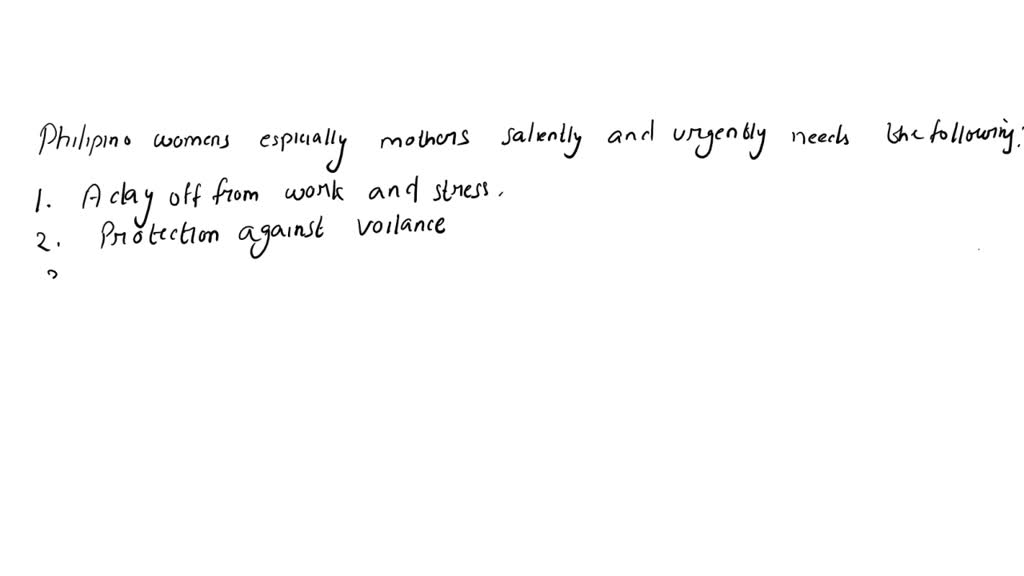 Philipino womens espicially mothers saliently and urgently needs the following:
1. A day off from work and stress.
2. Protection against voilance